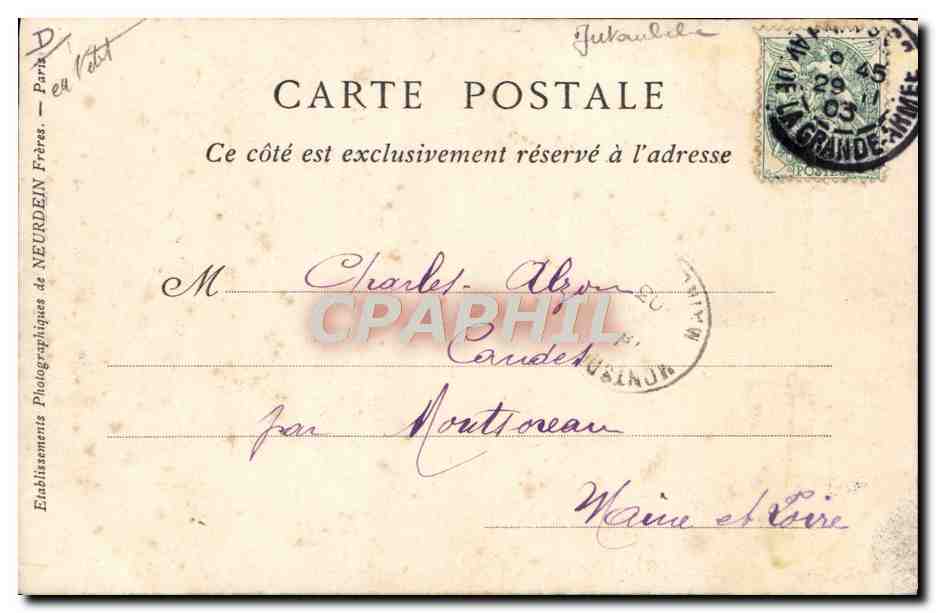 D
CARTE POSTALE
Ce côté est exclusivement réservé à l'adresse
AV. DE LA GRANDE-ARMÉE
9 45
29 11
03
POSTES
M Charles Alzon
Candes
par Montsoreau
Maine et Loire
MONTSO
MAINE
03
CPAPHIL
Etablissements Photographiques de NEURDEIN Frères. — Paris